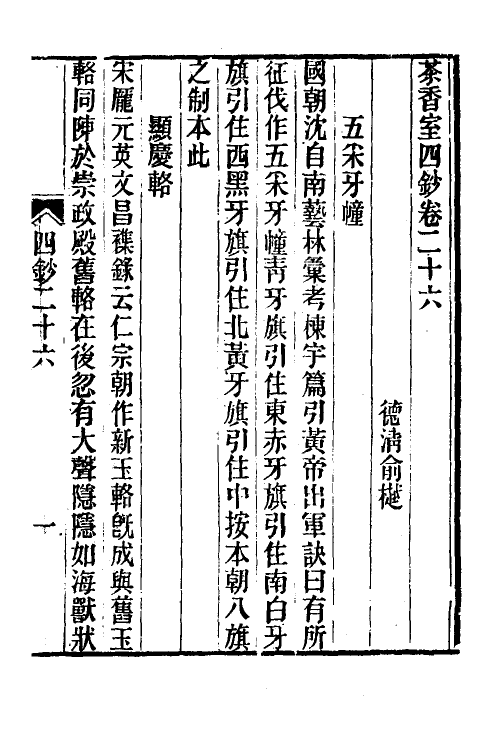 茶香室四鈔卷二十六
德淸俞樾
五采牙幢
國朝沈自南藝林彙考棟宇篇引黃帝出軍訣曰有所
征伐作五采牙幢靑牙旗引住東赤牙旗引住南白牙
旗引住西黑牙旗引住北黃牙旗引住中按本朝八旗
之制本此
顯慶輅
宋龐元英文昌襍錄云仁宗朝作新玉輅旣成與舊玉
輅同陳於崇政殿舊輅在後忽有大聲隱隱如海獸狀
四鈔二十六
一